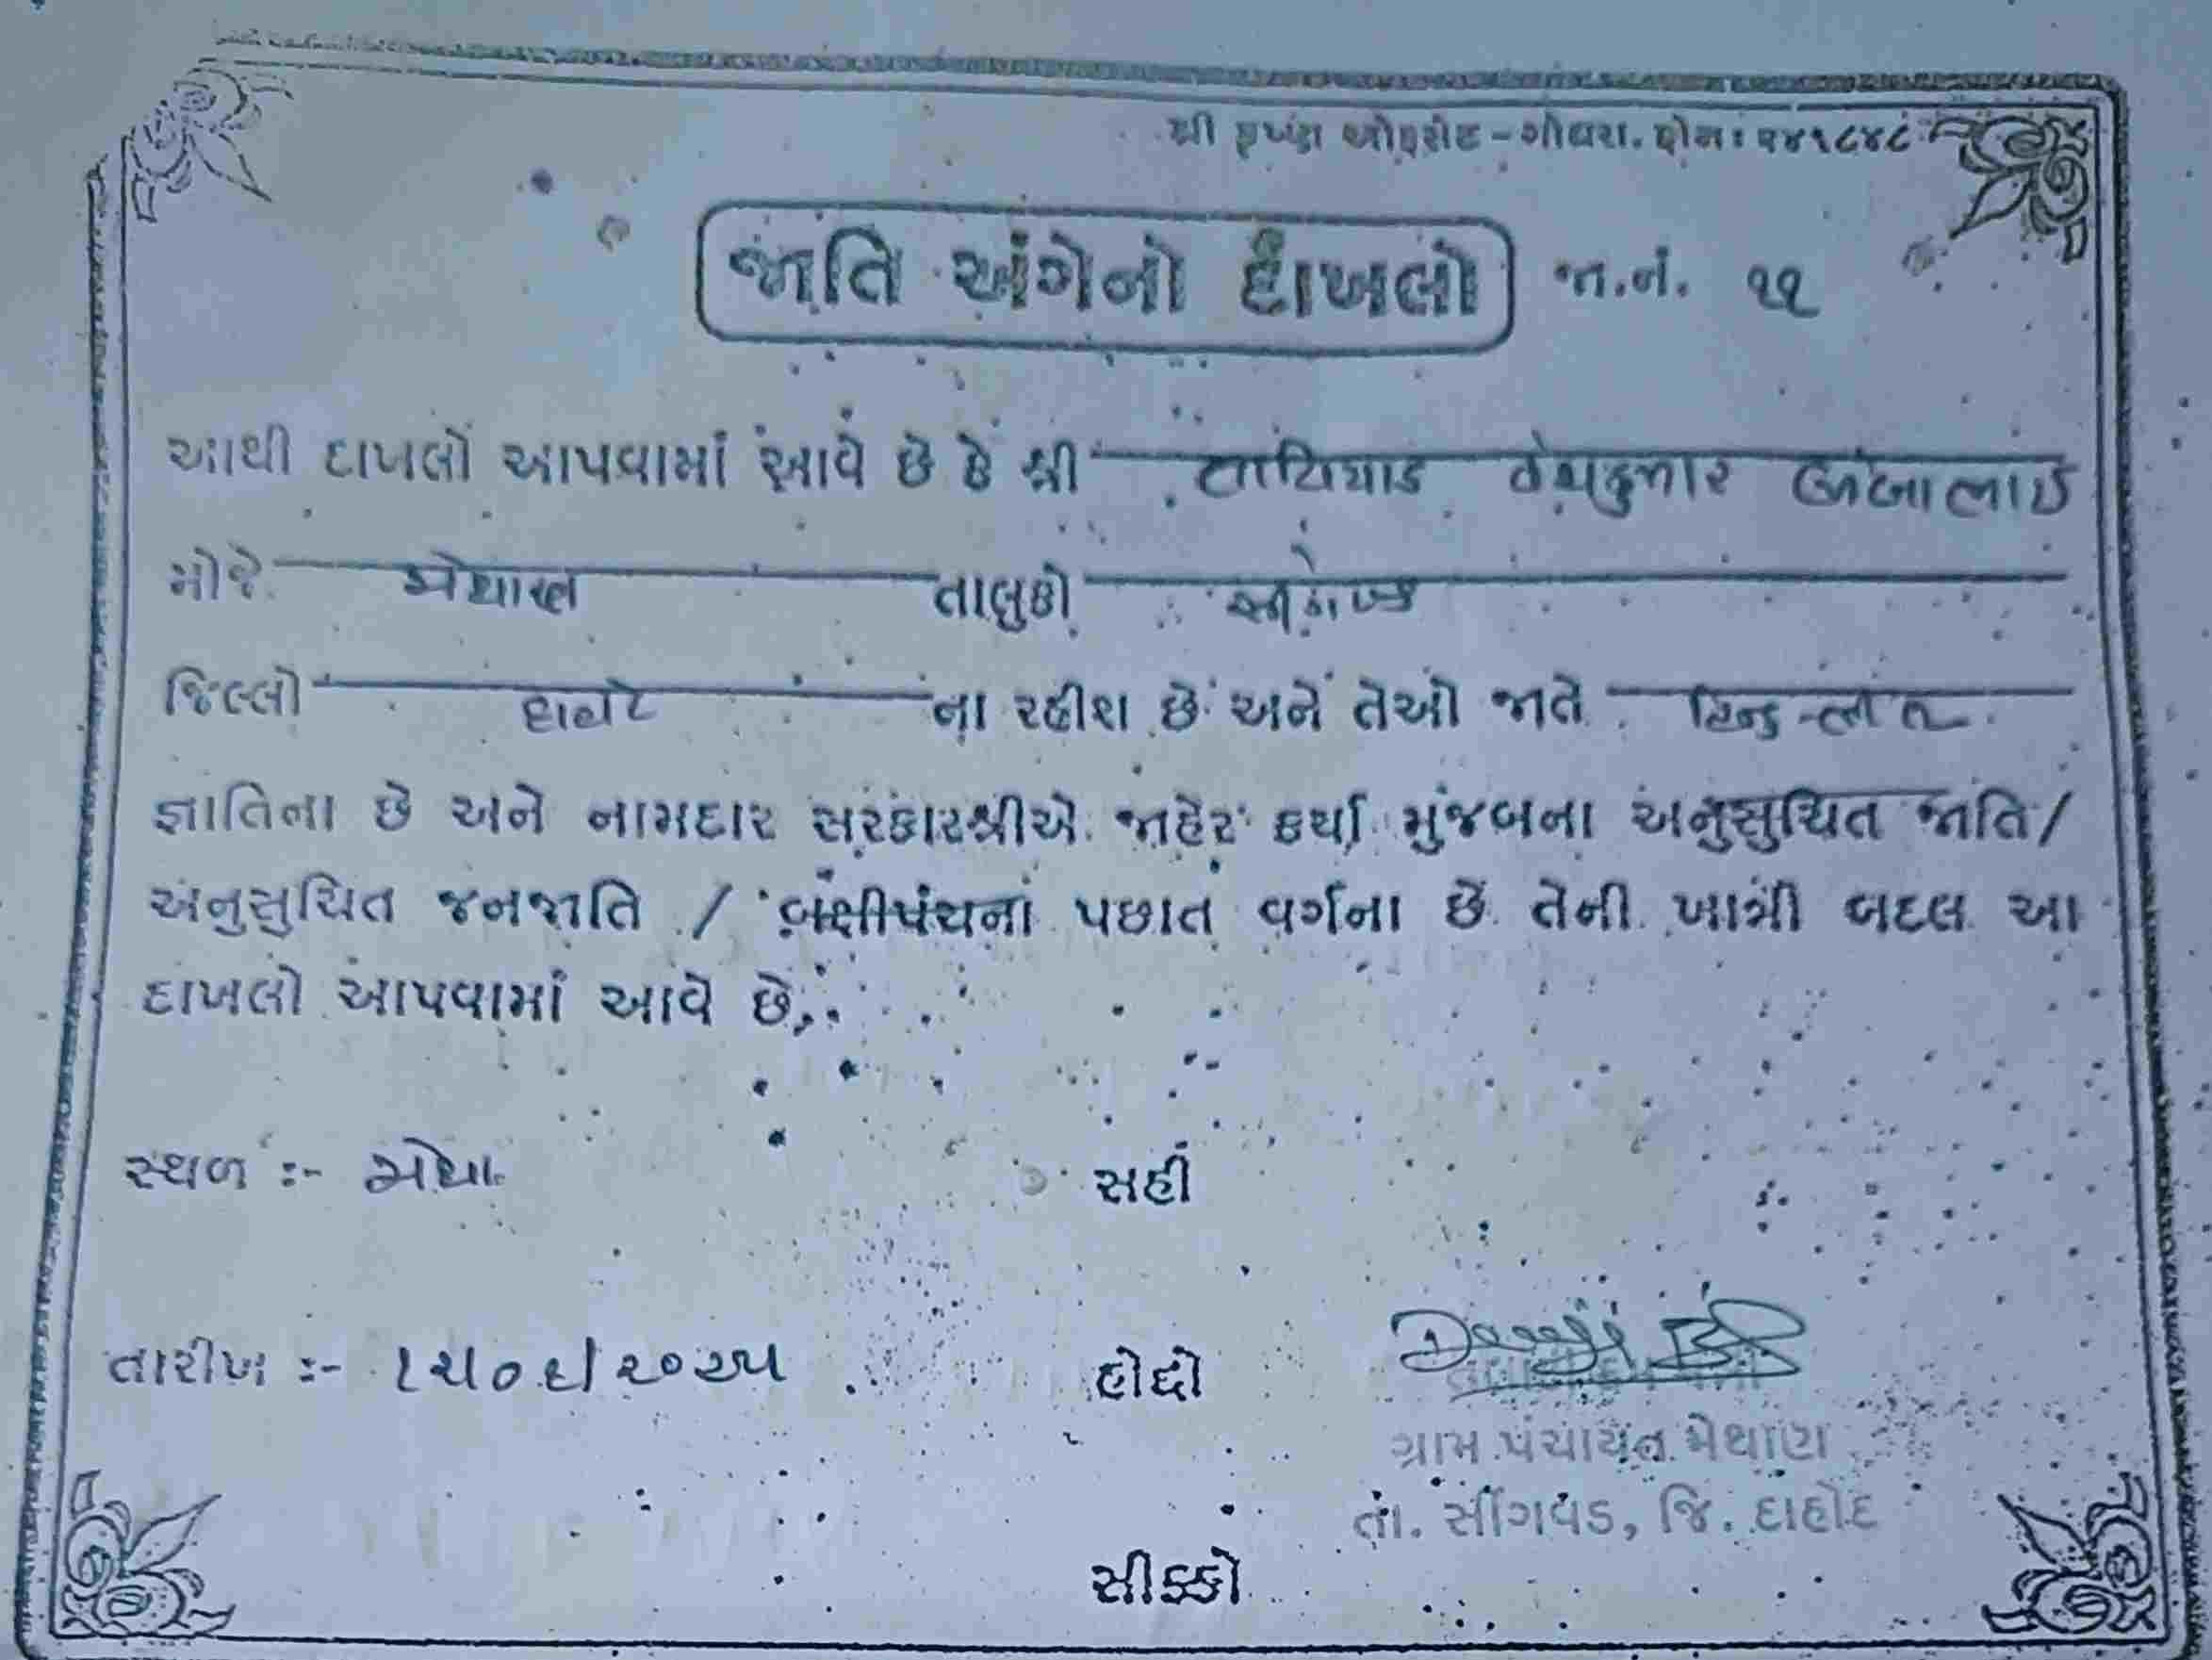 શ્રી કૃષ્ણ ઓફસેટ - ગોધરા. ફોન : ૨૪૧૮૪૮
જાતિ અંગેનો દાખલો જા.નં. ૧૧
આથી દાખલો આપવામાં આવે છે કે શ્રી
મોજે મેથાણ તાલુકો સીંગવડ
જિલ્લો દાહોદ ના રહીશ છે અને તેઓ જાતે હિન્દુ-
જ્ઞાતિના છે અને નામદાર સરકારશ્રીએ જાહેર કર્યા મુજબના અનુસુચિત જાતિ/
અનુસુચિત જનજાતિ / બક્ષીપંચના પછાત વર્ગના છે તેની ખાત્રી બદલ આ
દાખલો આપવામાં આવે છે.
સ્થળ :- મેથા સહી
તારીખ :- ૨૦૨૫ હોદ્દો
ગ્રામ પંચાયત મેથાણ
તા. સીંગવડ, જિ. દાહોદ
સીક્કો